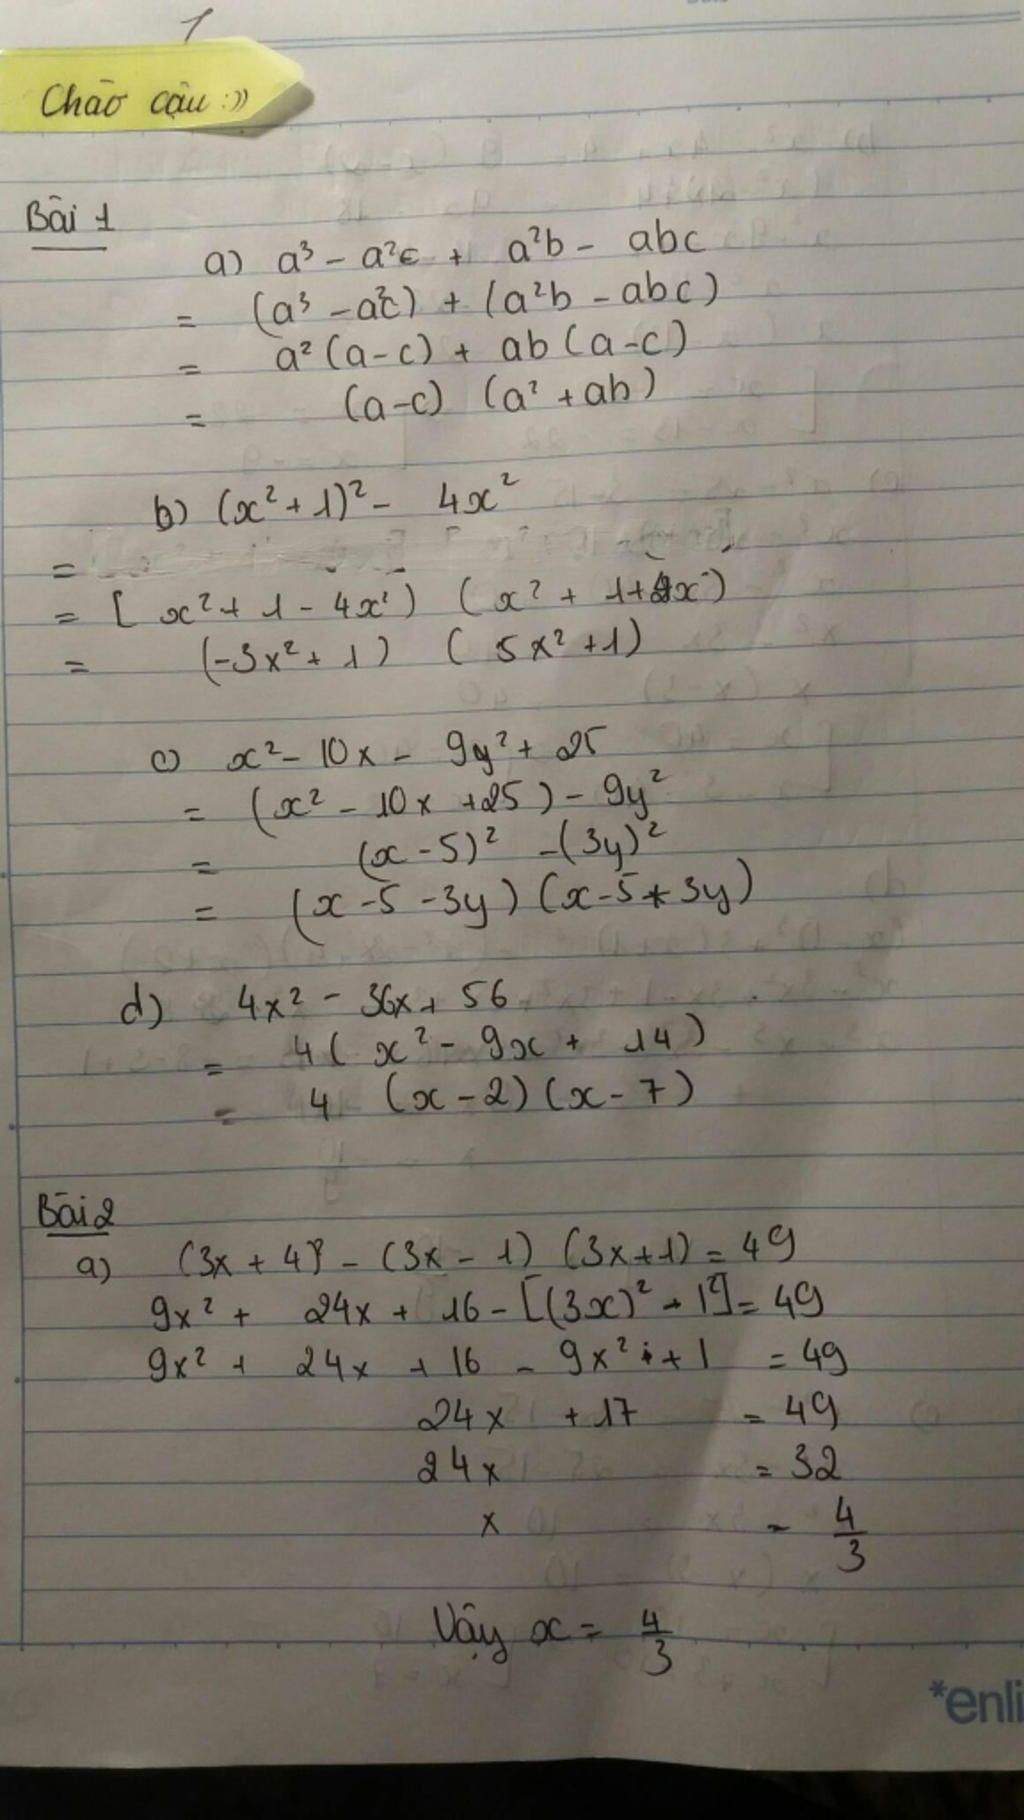 1
Chào cậu :))
Bài 1
a) a³ - a²c + a²b - abc
= (a³ - a²c) + (a²b - abc)
= a² (a-c) + ab (a-c)
= (a-c) (a² + ab)
b) (x² + 1)² - 4x²
=
= [ x² + 1 - 4x² ) ( x² + 1 + 4x² )
= (-3x² + 1 ) ( 5x² + 1)
c) x² - 10x - 9y² + 25
= (x² - 10x + 25 ) - 9y²
= (x - 5)² - (3y)²
= (x - 5 - 3y) (x - 5 + 3y)
d) 4x² - 36x + 56
= 4 ( x² - 9x + 14 )
= 4 (x - 2) (x - 7)
Bài 2
a) (3x + 4)² - (3x - 1) (3x + 1) = 49
9x² + 24x + 16 - [(3x)² - 1²] = 49
9x² + 24x + 16 - 9x² + 1 = 49
24x + 17 = 49
24x = 32
x = 4/3
Vậy x = 4/3
*enli